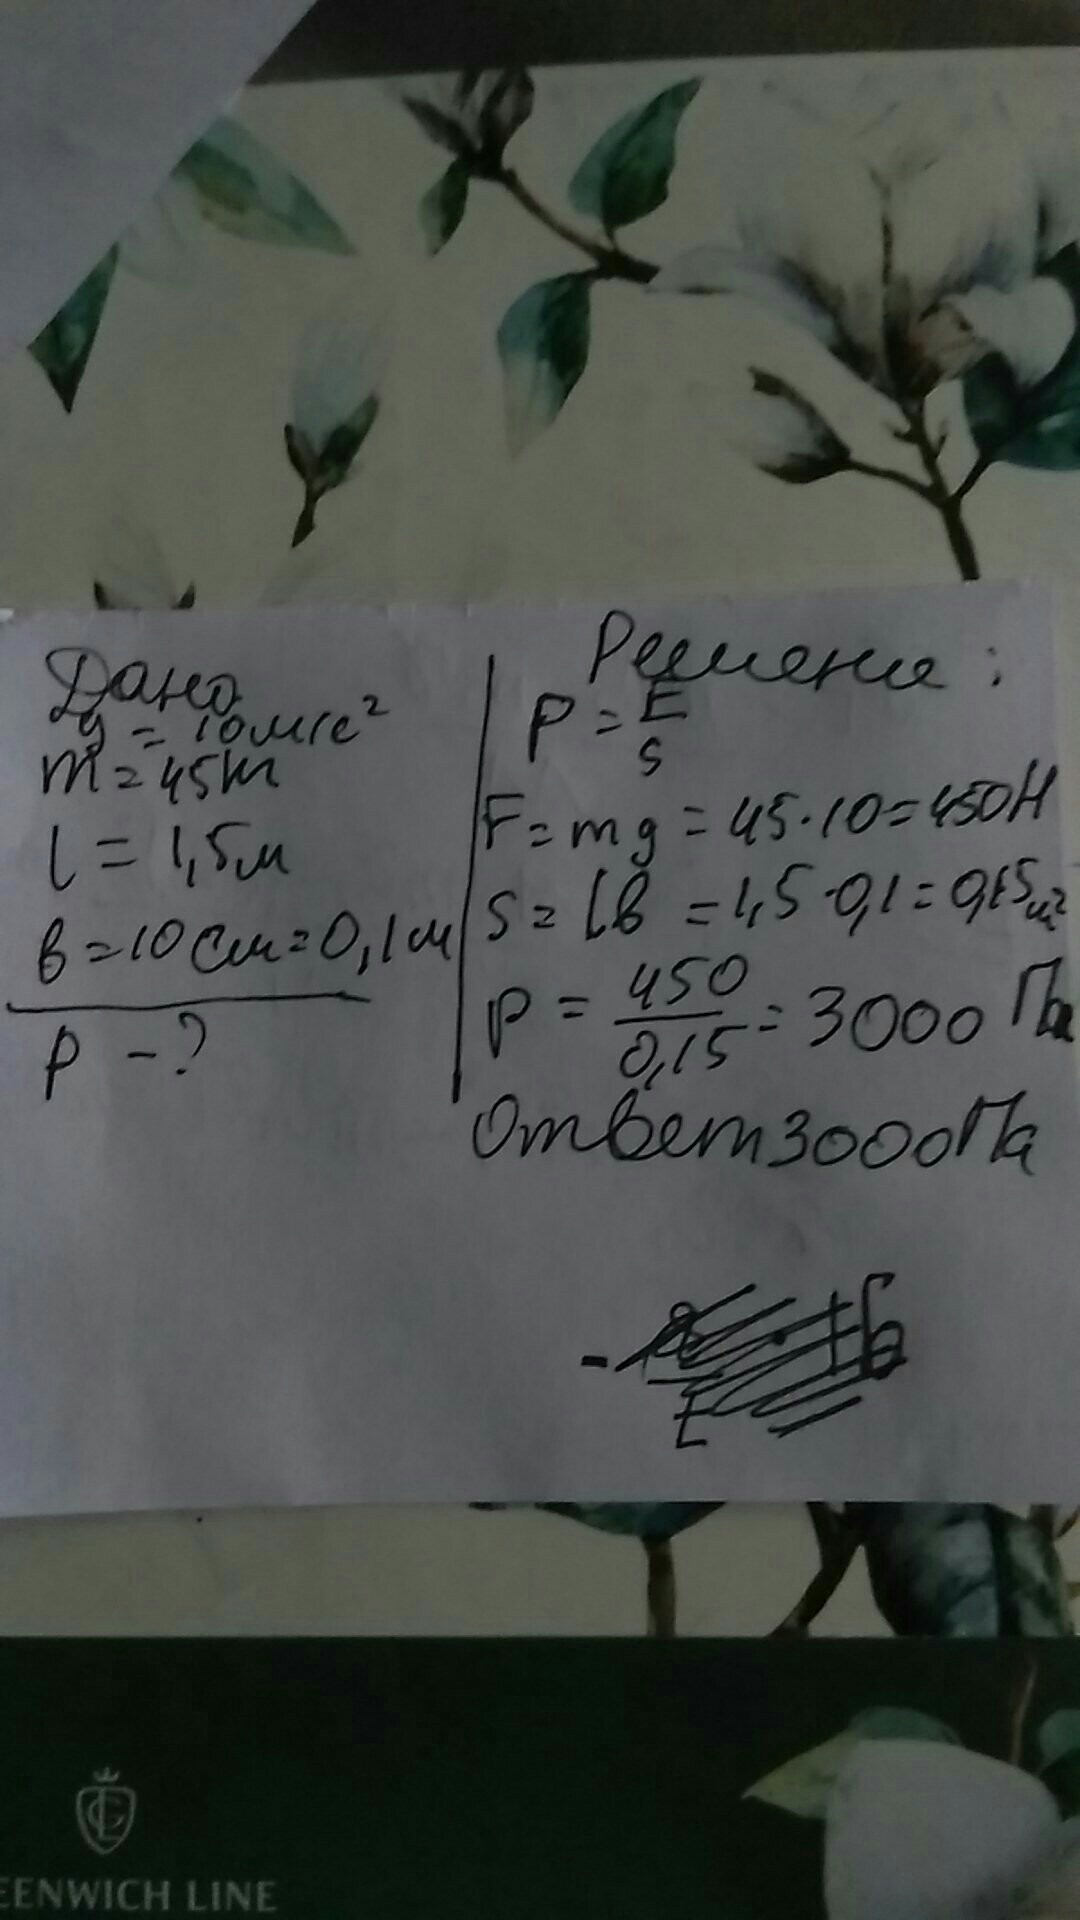 Дано
g = 10 м/с²
m = 45кг
l = 1,5м
в = 10 см = 0,1м
p - ?
Решение:
P = F/S
F = mg = 45·10 = 450Н
S = lв = 1,5·0,1 = 0,15м²
p = 450/0,15 = 3000 Па
Ответ 3000Па
EENWICH LINE